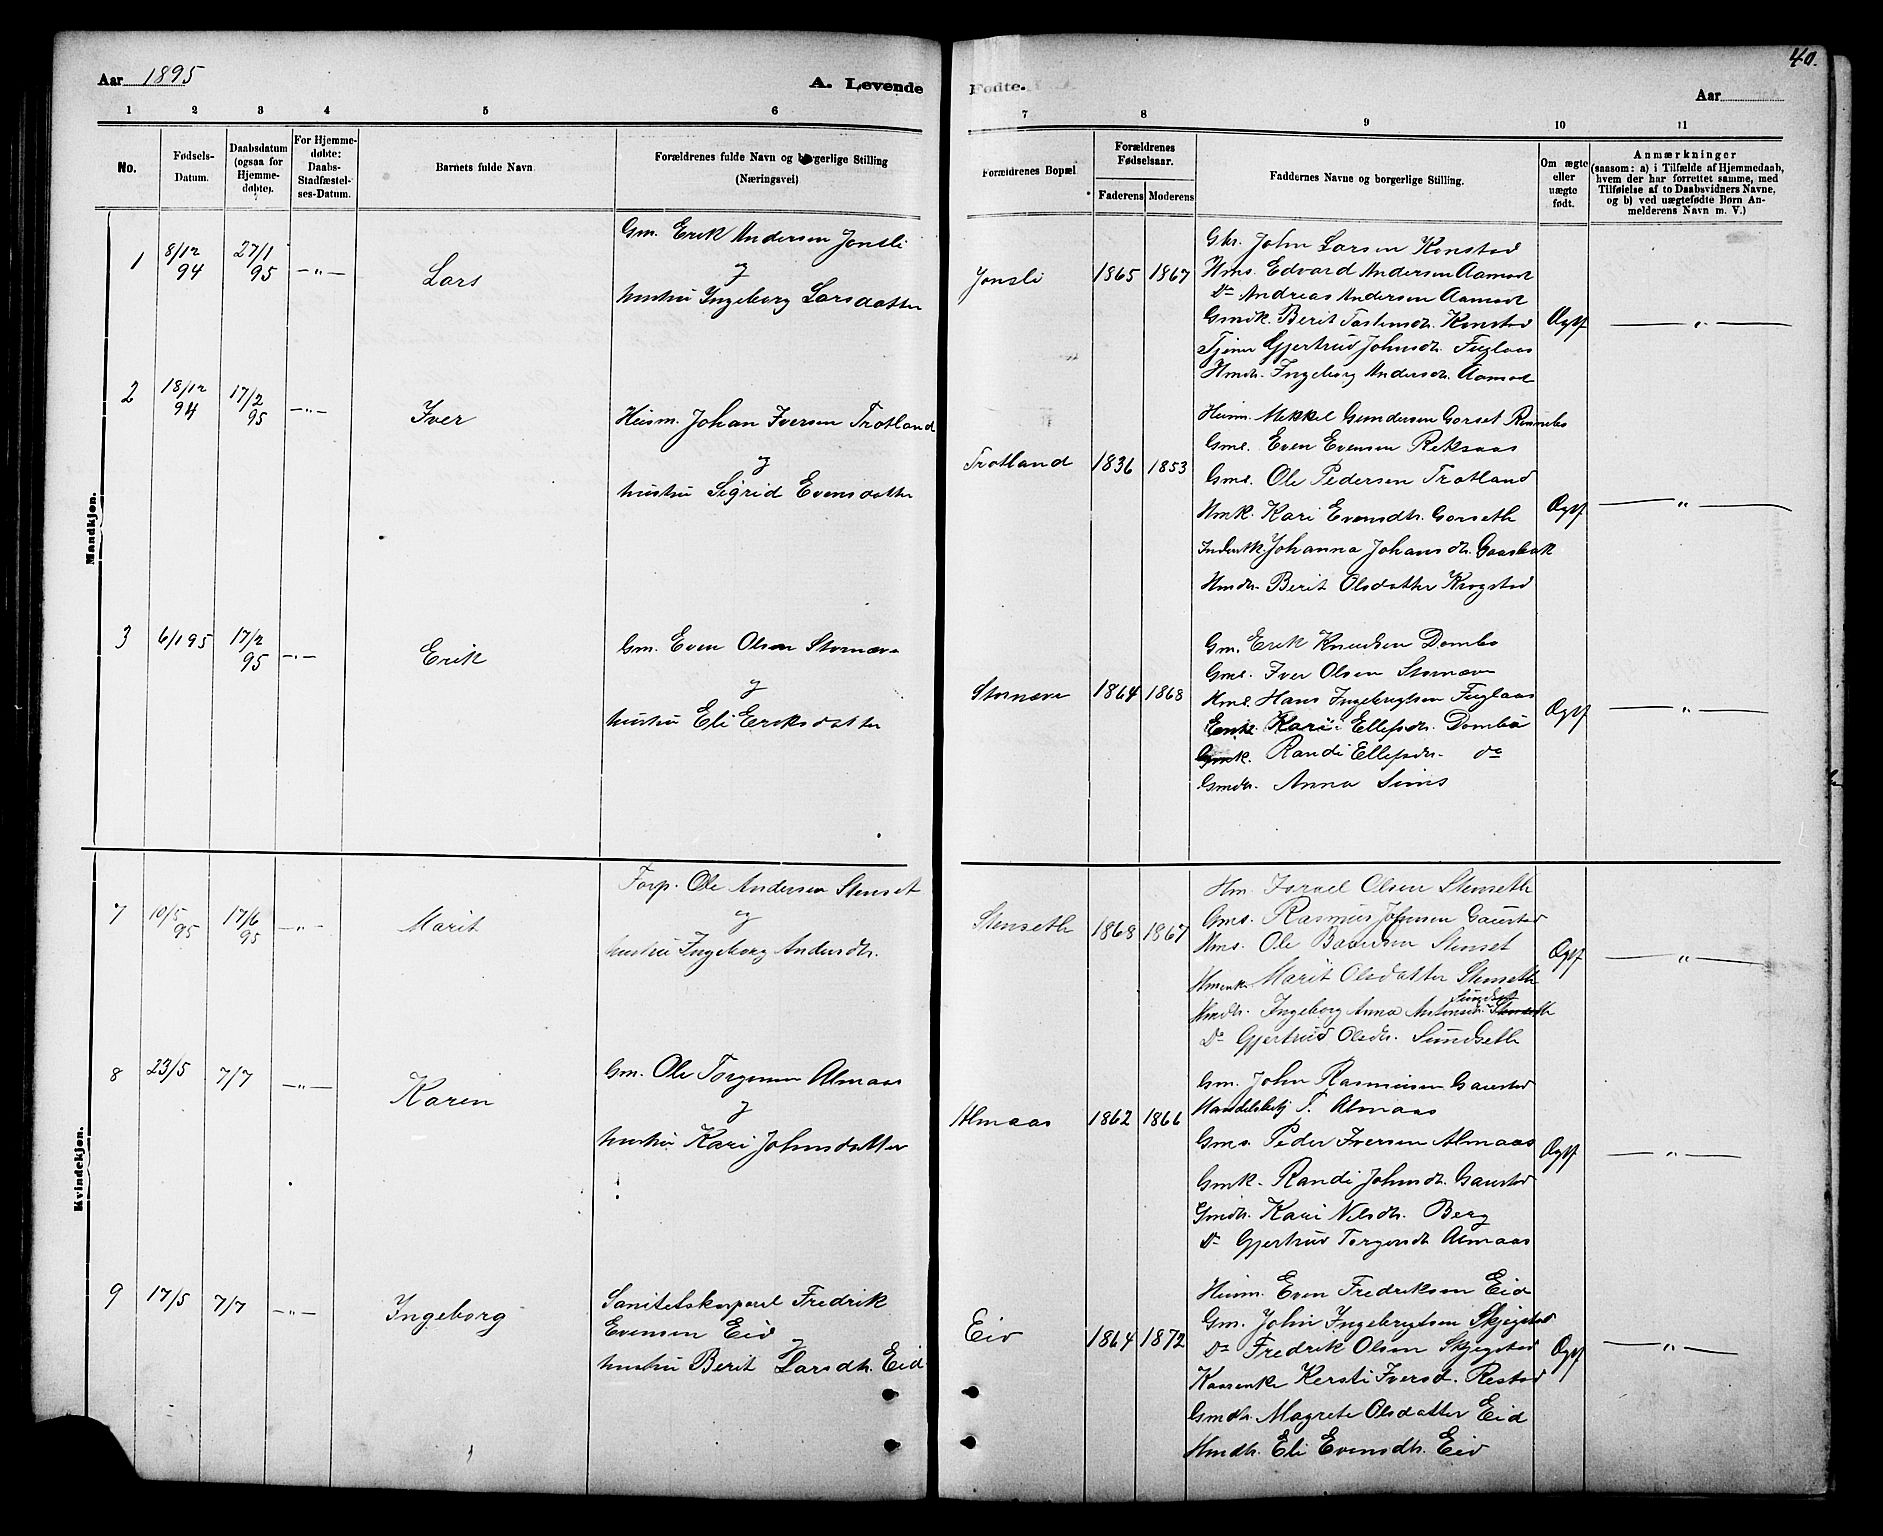 Aar 1895
A. Levende
Fødte.
Aar
40.
1 2 3 4 5 6 7 8 9 10 11
No.
Fødsels-
Datum.
Daabsdatum
(ogsaa for
Hjemme-
døbte).
For Hjemme-
døbte:
Daabs-
Stadfæstel-
ses-Datum.
Barnets fulde Navn.
Forældrenes fulde Navn og borgerlige Stilling
(Næringsvei)
Forældrenes Bopæl
Forældrenes
Fødselsaar.
Faderens Moderens
Faddernes Navne og borgerlige Stilling.
Om ægte
eller
uægte
født.
Anmærkninger
(saasom: a) i Tilfælde af Hjemmedaab,
hvem der har forrettet samme, med
Tilføielse af to Daabsvidners Navne,
og b) ved uægtefødte Børn An-
melderens Navn m. V.)
Mandkjøn.
1
8/12
94
27/1
95
—„—
Lars
Gm. Erik Andersen Jonsli
og
hustru Ingeborg Larsdatter
Jonsli
1865 1867
Gbr. John Larsen Konstad
Hms. Edvard Andersen Aamot
Do Andreas Andersen Aamot
Gmdk. Berit Tostensdtr. Konstad
Tjener Gjertrud Johnsdtr. Fuglaas
Hmdtr. Ingeborg Andersdtr. Aamot
Ægtf
—„—
2
18/12
94
17/2
95
—„—
Iver
Husm. Johan Iversen Trotland
og
hustru Sigrid Evensdatter
Trotland
1836 1853
Husm. Mikkel Gundersen Gorset Rennebo
Gms. Even Evensen Reksaas
Gms. Ole Pedersen Trotland
Hmk. Kari Evensdtr. Gorseth
Inderstk. Johanna Johansdtr. Gaasbak
Hmdtr. Berit Olsdatter Krogstad
Ægtf
—„—
3
6/1 95
17/2
95
—„—
Erik
Gm. Even Olsen Stornæve
og
hustru Eli Eriksdatter
Stornæve
1864 1868
Gm. Erik Knudsen Dombo
Gms. Iver Olsen Stornæve
Hms. Hans Ingebrigtsen Fuglaas
Enke Kari Ellefsdtr. Dombo
Gmk. Randi Ellefsdtr. do
Gmdtr. Anna Sims
Ægtf
—„—
Kvindekjøn.
7
10/5
95
17/6
95
—„—
Marit
Forp. Ole Andersen Stenset
og
hustru Ingeborg Andersdtr.
Stenseth
1868 1867
Hm. Israel Olsen Stenseth
Gms. Rasmus Johnsen Gaustad
Hms. Ole Baarsen Stenset
Hmenk. Marit Olsdatter Stenseth
Sundset
Hmdtr. Ingeborg Anna Antonsdtr. Stenseth
Do Gjertrud Olsdtr. Sundseth
Ægtf
—„—
8
23/5
7/7
—„—
Karen
Gm. Ole Torgersen Almaas
og
hustru Kari Johnsdatter
Almaas
1862 1866
Gm. John Rasmussen Gaustad
Handelsbetj T. Almaas
Gms. Peder Iversen Almaas
Gmk. Randi Johnsdtr. Gaustad
Gmdtr. Kari Nilsdtr. Berg
Do Gjertrud Torgersdtr. Almaas
Ægtf
—„—
9
17/5
7/7
—„—
Ingeborg
Sanitetskorporal Fredrik
Evensen Eid
og
hustru Berit Larsdtr. Eid
Eid
1864 1872
Husm. Even Fredriksen Eid
Gm. John Ingebrigtsen Skjegstad
Do Fredrik Olsen Skjegstad
Kaarenke Kersti Iversd. Restad
Gmdtr. Magrete Olsdatter Eid
Hmdtr. Eli Evensdtr. Eid
Ægtf
—„—